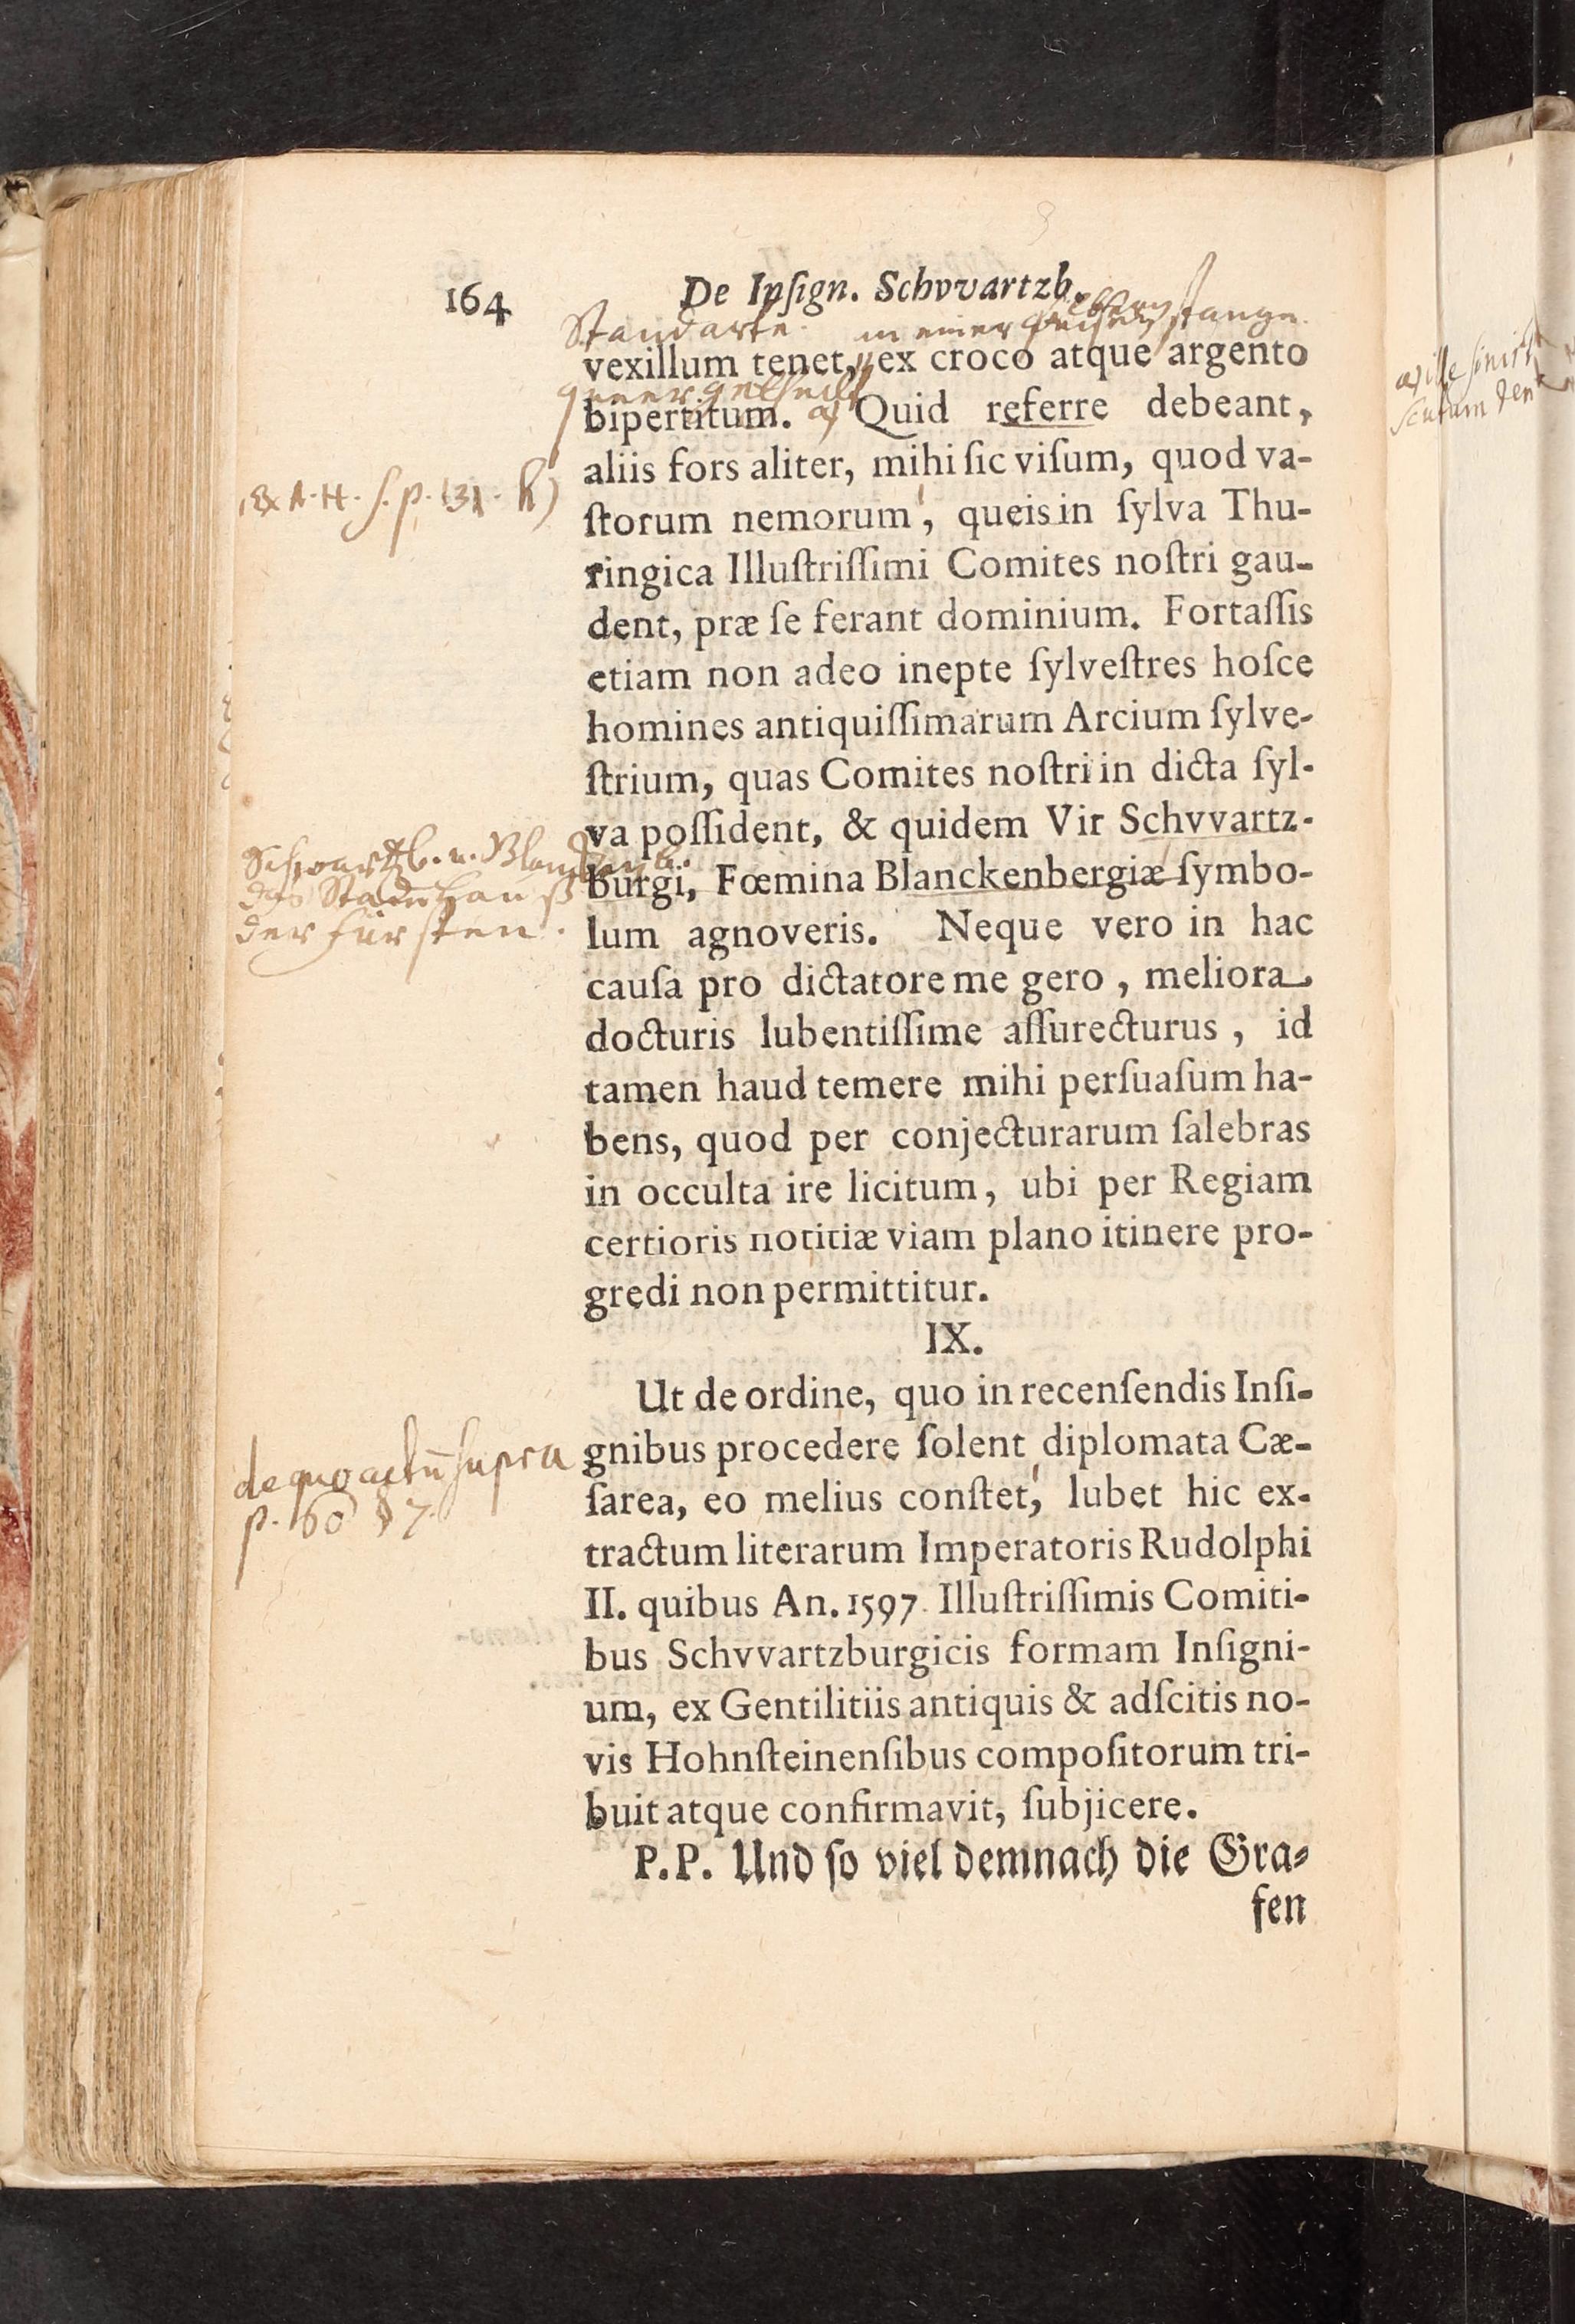 164 De Inſign. Schvvartzb.
Standarte. in einer stange.
vexillum tenet, ex croco atque argento
bipertitum. a) Quid referre debeant,
aliis fors aliter, mihi ſic viſum, quod va-
ſtorum nemorum, queis in ſylva Thu-
ringica Illuſtriſſimi Comites noſtri gau-
dent, præ ſe ferant dominium. Fortaſſis
etiam non adeo inepte ſylveſtres hoſce
homines antiquiſſimarum Arcium ſylve-
ſtrium, quas Comites noſtri in dicta ſyl-
va poſſident, & quidem Vir Schvvartz-
burgi, Fœmina Blanckenbergiæ ſymbo-
lum agnoveris. Neque vero in hac
cauſa pro dictatore me gero, meliora
docturis lubentiſſime aſſurecturus, id
tamen haud temere mihi perſuaſum ha-
bens, quod per conjecturarum ſalebras
in occulta ire licitum, ubi per Regiam
certioris notitiæ viam plano itinere pro-
gredi non permittitur.
IX.
Ut de ordine, quo in recenſendis Inſi-
gnibus procedere ſolent diplomata Cæ-
ſarea, eo melius conſtet, lubet hic ex-
tractum literarum Imperatoris Rudolphi
II. quibus An. 1597. Illuſtriſſimis Comiti-
bus Schvvartzburgicis formam Inſigni-
um, ex Gentilitiis antiquis & adſcitis no-
vis Hohnſteinenſibus compoſitorum tri-
buit atque confirmavit, ſubjicere.
P.P. Und ſo viel demnach die Gra-
fen
p. 131. h)
Schwartzb. u. Blanckenb.
das Stamhauß
der fürsten.
de quo actū supra
p. 60 § 7.
a) ille sinist
scutum ten